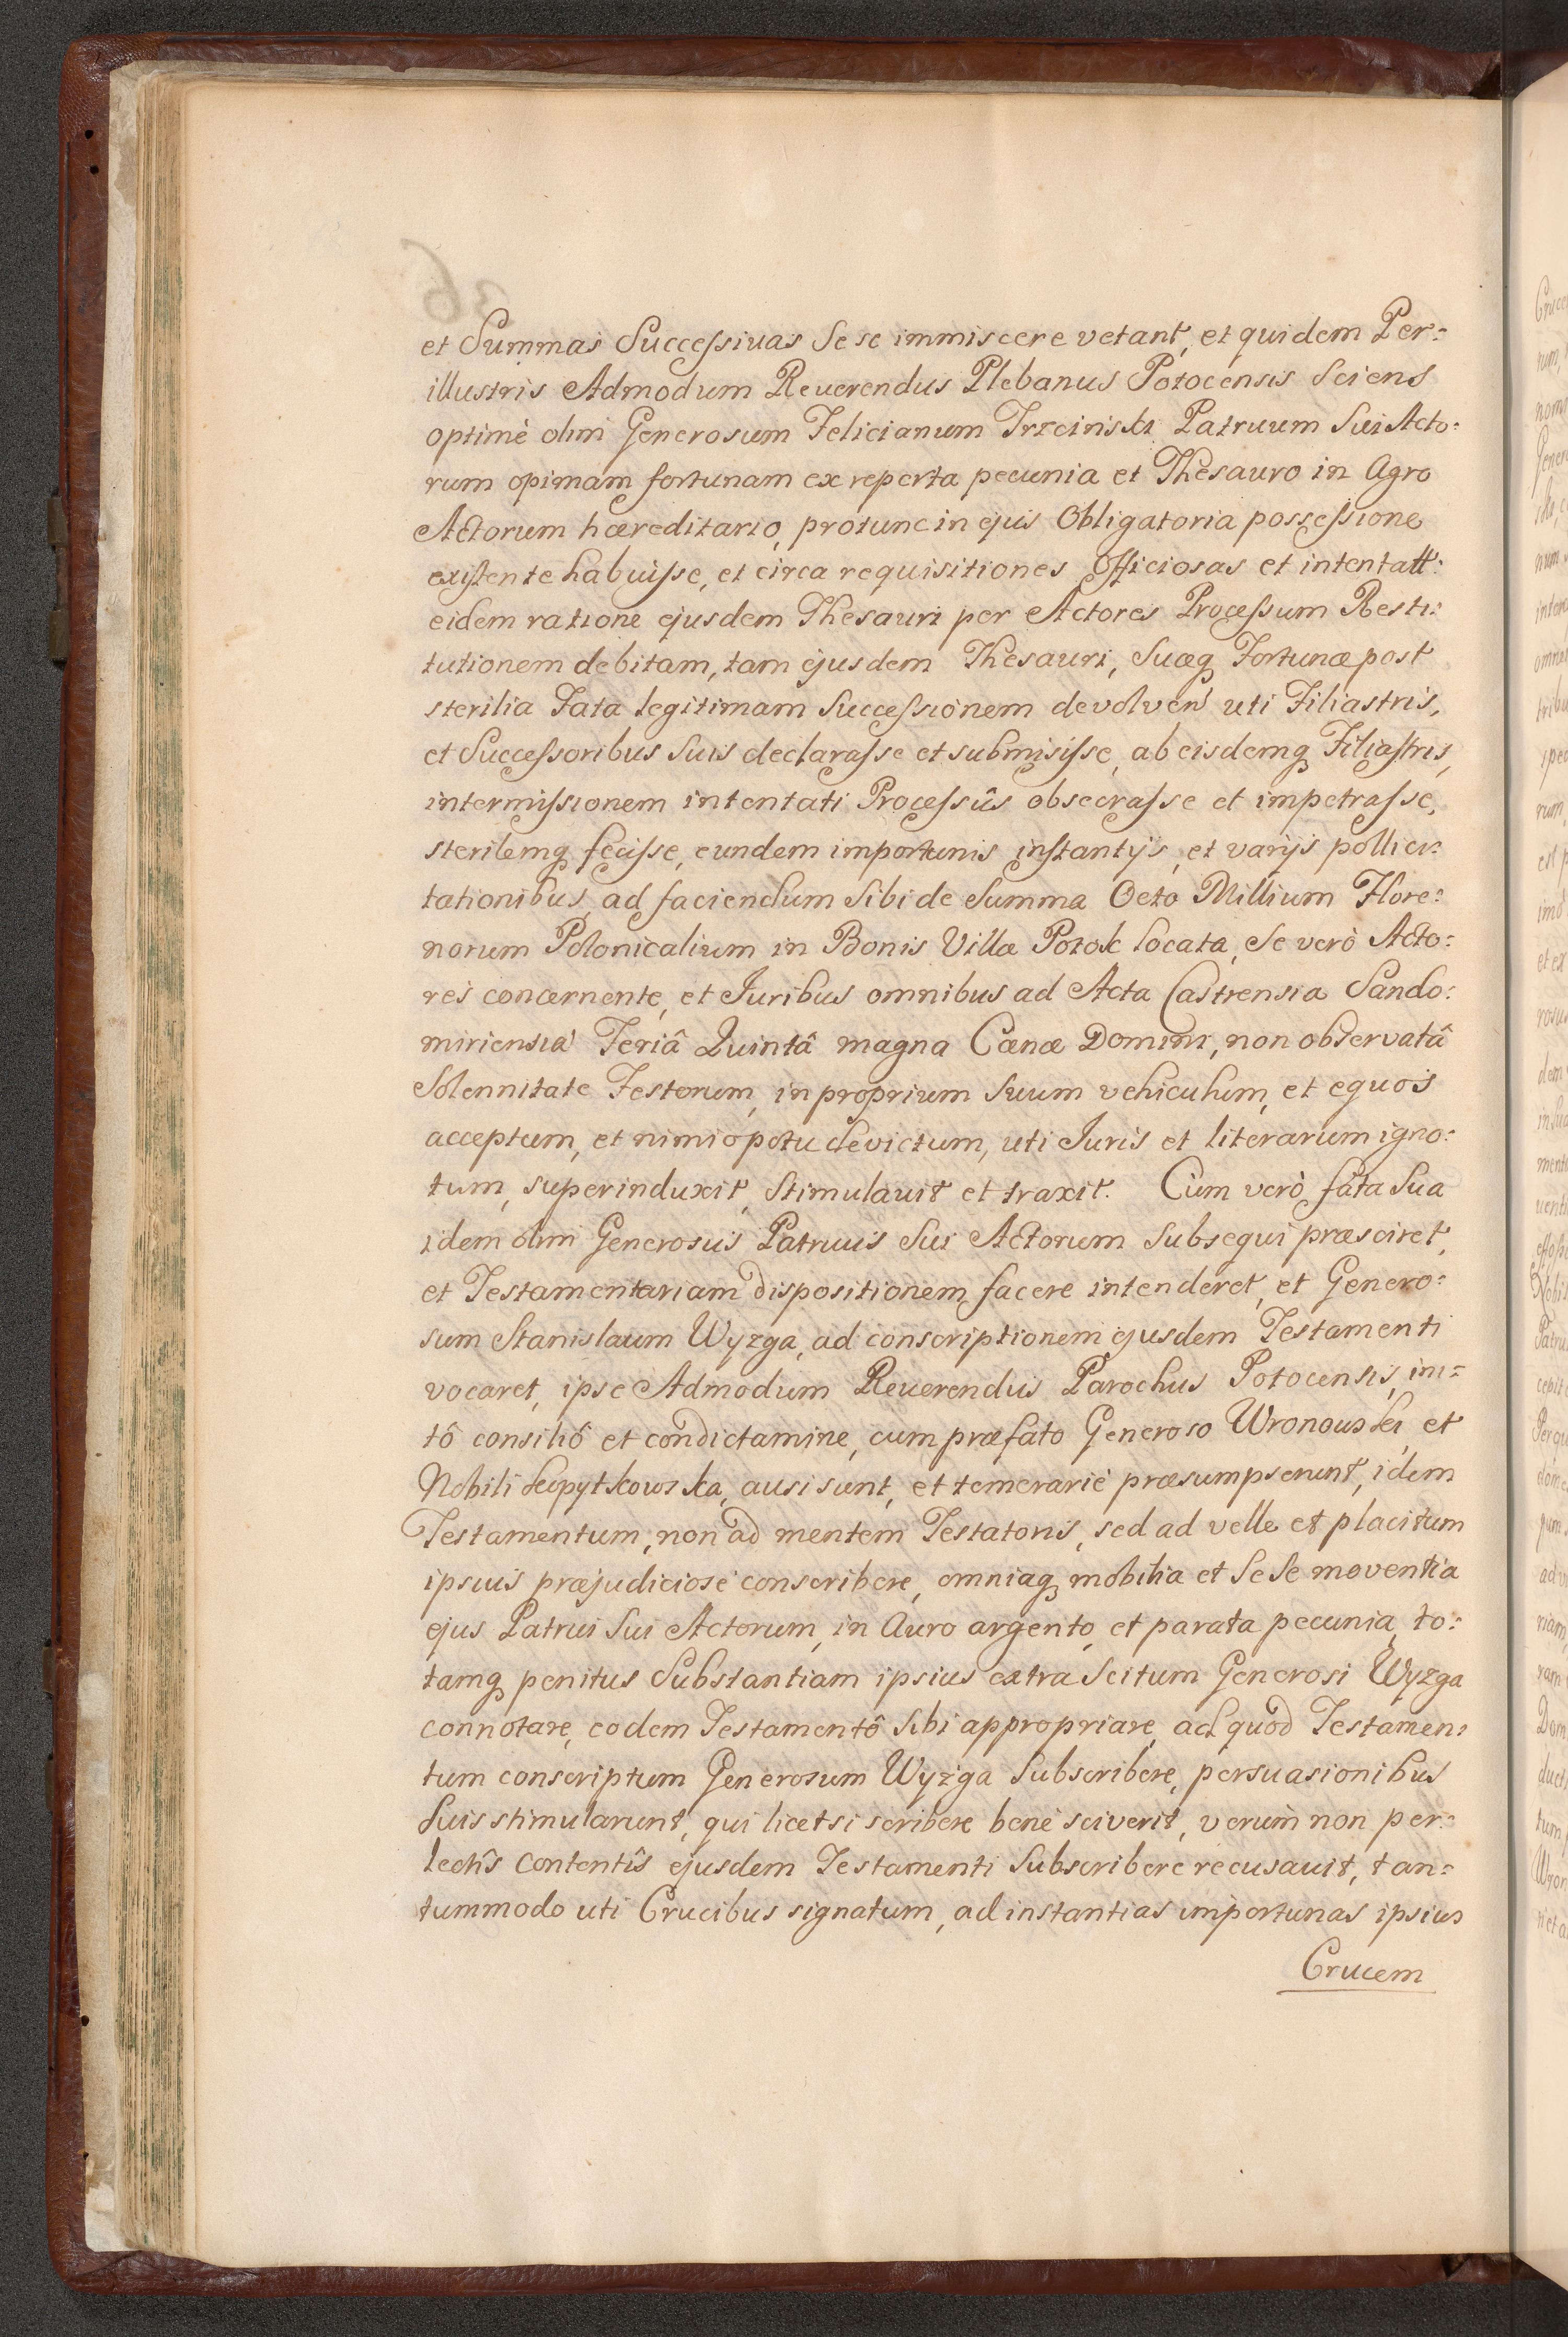 et Summas Successivas Sese immiscere vetant, et quidem Per=
illustris Admodum Reverendus Plebanus Potocensis Sciens
optimè olim Generosum Felicianum Trzcinski Patruum Sui Acto=
rum opimam fortunam ex reperta pecunia et Thesauro in Agro
Actorum hæreditario, protunc in ejus Obligatoria possessione
existente habuisse, et circa requisitiones Officiosas et intentatt:
eidem ratione ejusdem Thesauri per Actores Processum Resti=
tutionem debitam, tam ejusdem Thesauri, Suæq Fortunæ post
sterilia Fata legitimam Successionem devolven uti Filiastris,
et Successoribus Suis declarasse et submisisse, ab eisdemq Filiastris,
intermissionem intentati Processûs obsecrasse et impetrasse,
sterilemq fecisse, eundem importunis instantijs, et varijs pollici=
tationibus, ad faciendum Sibi de Summa Octo Millium Flore=
norum Polonicalium in Bonis Villæ Potok locata, Se verò Acto=
res concernente, et Juribus omnibus ad Acta Castrensia Sando=
miriensia Feriâ Quintâ magna Cænæ Domini, non observatâ
Solennitate Festorum, in proprium Suum vehiculum, et equos
acceptum, et nimio potu devictum, uti Juris et literarum igno=
tum, superinduxit, Stimulavit et traxit. Cùm verò fata Sua
idem olim Generosus Patruus Sui Actorum Subsequi præsciret,
et Testamentariam dispositionem facere intenderet, et Genero=
sum Stanislaum Wyzga, ad conscriptionem ejusdem Testamenti
vocaret, ipse Admodum Reverendus Parochus Potocensis, ini=
tô consiliô et condictamine, cum præfato Generoso Wronowski, et
Nobili Kopytkowska, ausi sunt, et temerariè præsumpserunt, idem
Testamentum, non ad mentem Testatoris, sed ad velle et placitum
ipsius præjudiciosè conscribere, omniaq mobilia et Sese moventia
ejus Patrui Sui Actorum, in Auro argento, et parata pecunia, to=
tamq penitus Substantiam ipsius extra Scitum Generosi Wyzga
connotare, eodem Testamentô Sibi appropriare, ad quod Testamen=
tum conscriptum Generosum Wyzga Subscribere, persuasionibus
Suis stimularunt, qui licet si scribere benè sciverit, verùm non per=
lectîs Contentîs ejusdem Testamenti Subscribere recusavit, tan=
tummodo uti Crucibus signatum, ad instantias importunas ipsius
Crucem